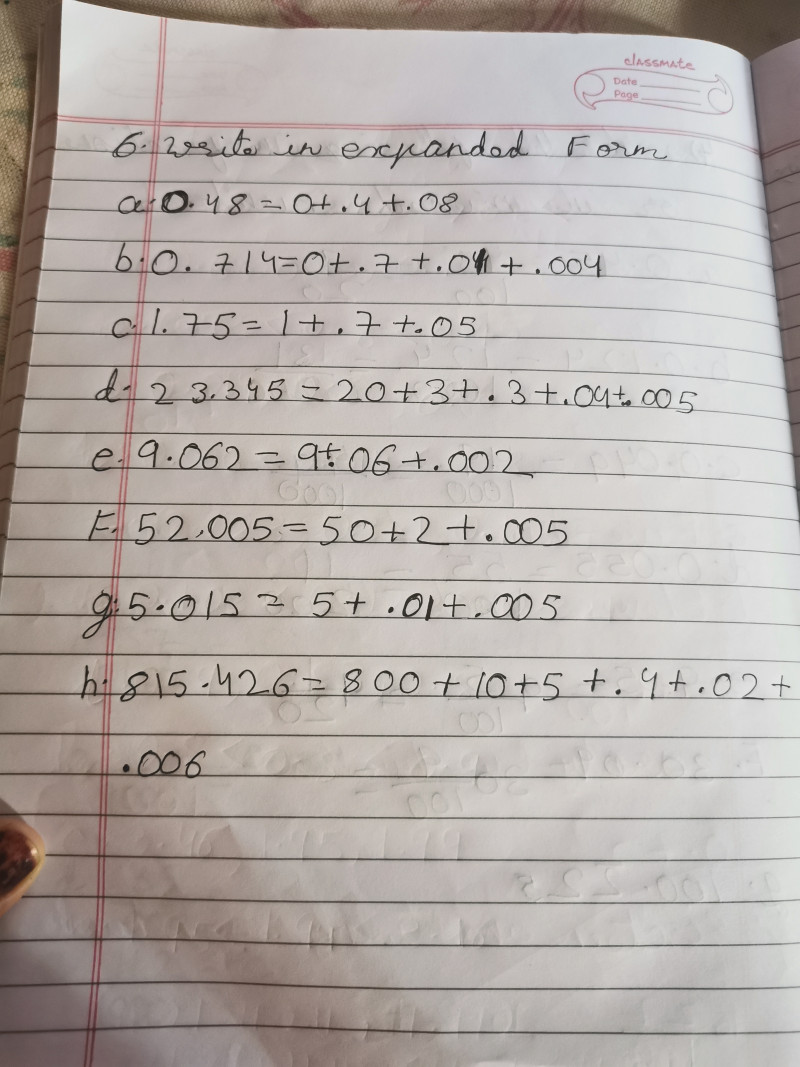 classmate
Date
Page
6. Write in expanded Form
a. 0.48 = 0+.4+.08
b. 0.714=0+.7+.01+.004
c. 1.75=1+.7+.05
d. 23.345=20+3+.3+.04+.005
e. 9.062=9+.06+.002
F. 52.005=50+2+.005
g. 5.015= 5+.01+.005
h. 815.426=800+10+5+.4+.02+
.006